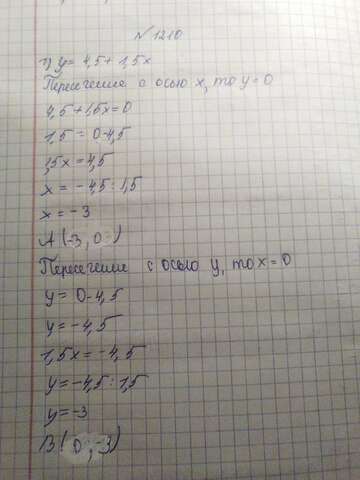 №1210
1) y = 4,5 + 1,5x
Пересечение с осью x, то y = 0
4,5 + 1,5x = 0
1,5 = 0 - 4,5
1,5x = 4,5
x = -4,5 : 1,5
x = -3
A (-3, 0)
Пересечение с осью y, то x = 0
y = 0 - 4,5
y = -4,5
1,5x = -4,5
y = -4,5 : 1,5
y = -3
B (0, -3)